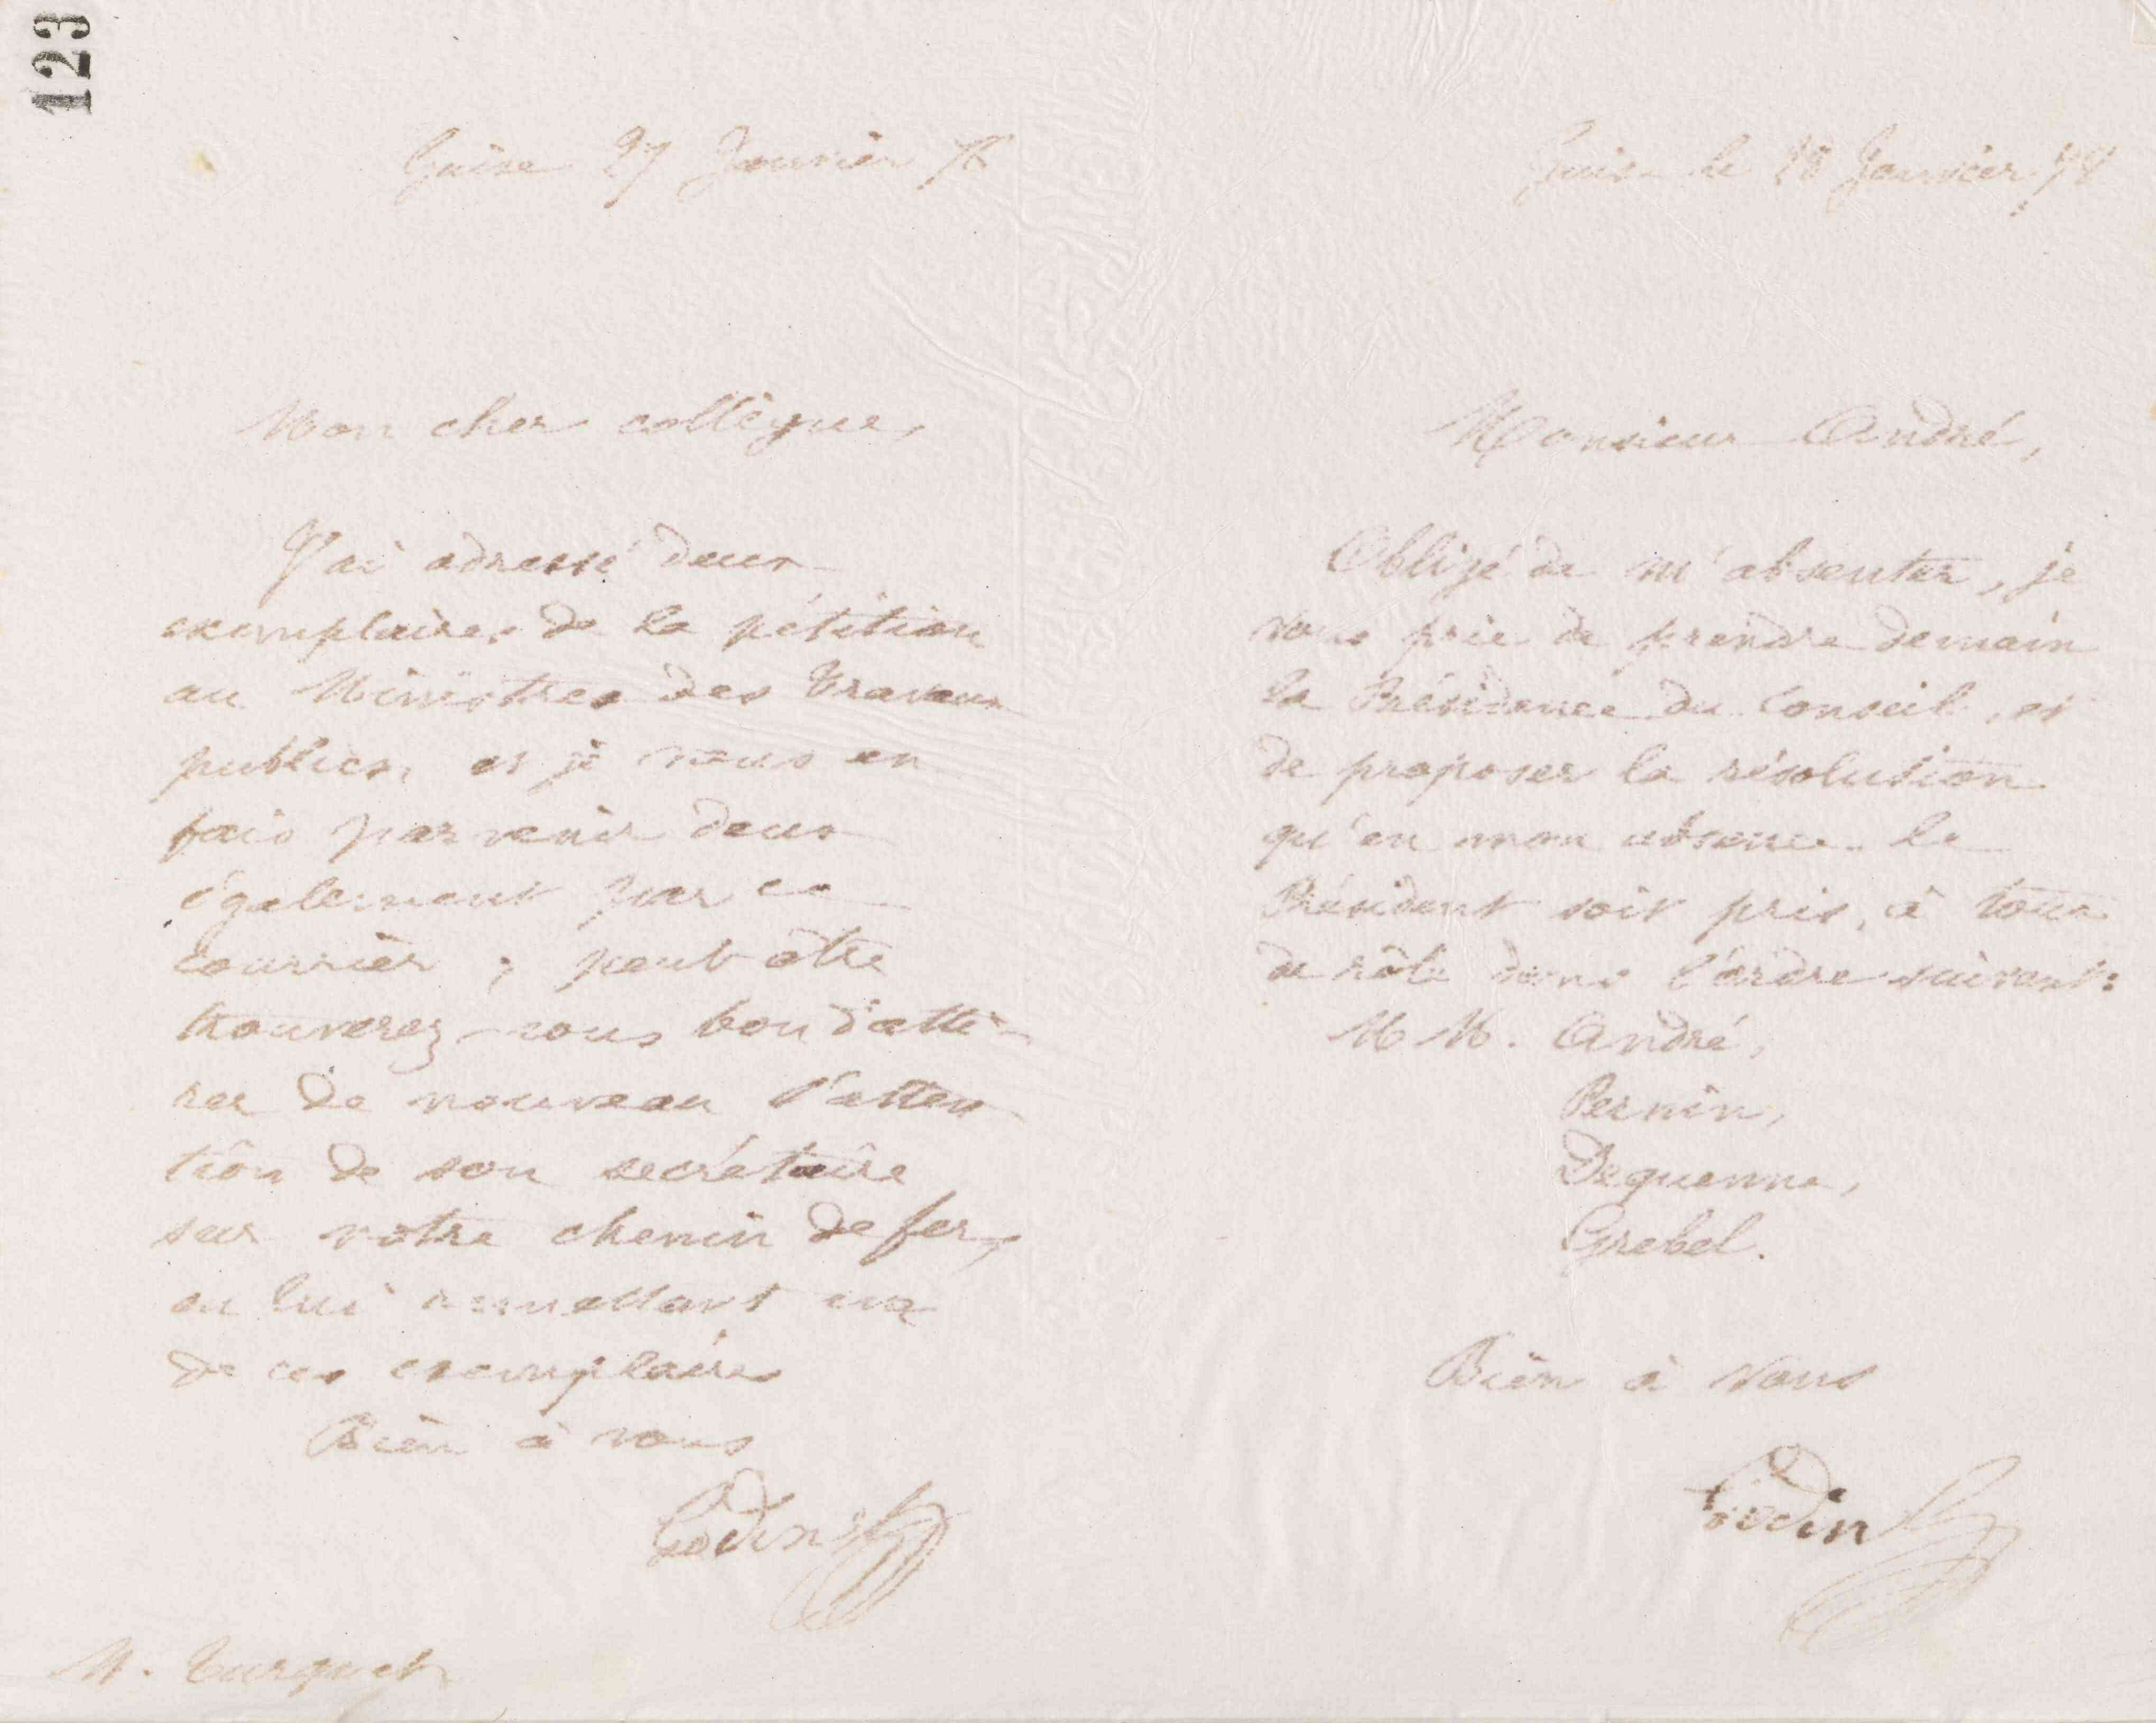 123
Guise 27 Janvier 78
Mon cher collègue,
J'ai adressé deux
exemplaires de la pétition
au Ministres des Travaux
publics, et je vous en
fais parvenir deux
également par ce
courrier ; peut être
trouverez-vous bon d'atti-
rer de nouveau l'atten-
tion de son secrétaire
sur votre chemin de fer,
en lui remettant un
de ces exemplaires
Bien à vous
Godin
M. Turquet
Guise le Janvier 78
Monsieur André,
Obligé de m'absenter, je
vous prie de prendre demain
la Présidence du Conseil, et
de proposer la résolution
qu'en mon absence le
Président soit pris, à tour
de rôle dans l'ordre suivant:
MM. André,
Pernin,
Dequenne,
Grebel.
Bien à vous
Godin